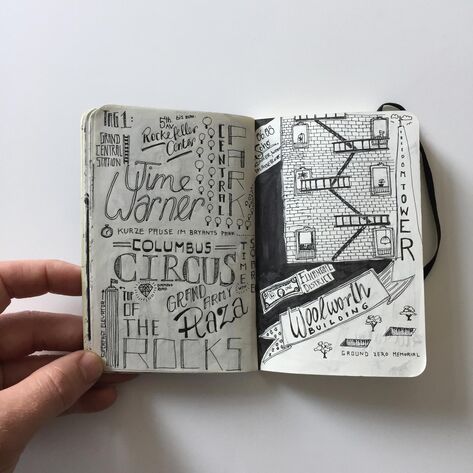 TAG 1:
5th
Rockefeller
Center
GRAND
CENTRAL
STATION
CENTRAL
PARK
Time
Warner
KURZE PAUSE IM BRYANTS PARK
COLUMBUS
CIRCUS
TIMES
GRAND
ARMY
Plaza
TOP
OF THE
ROCKS
FREEDOM TOWER
Financial
DISTRICT
Woolworth
BUILDING
GROUND ZERO MEMORIAL